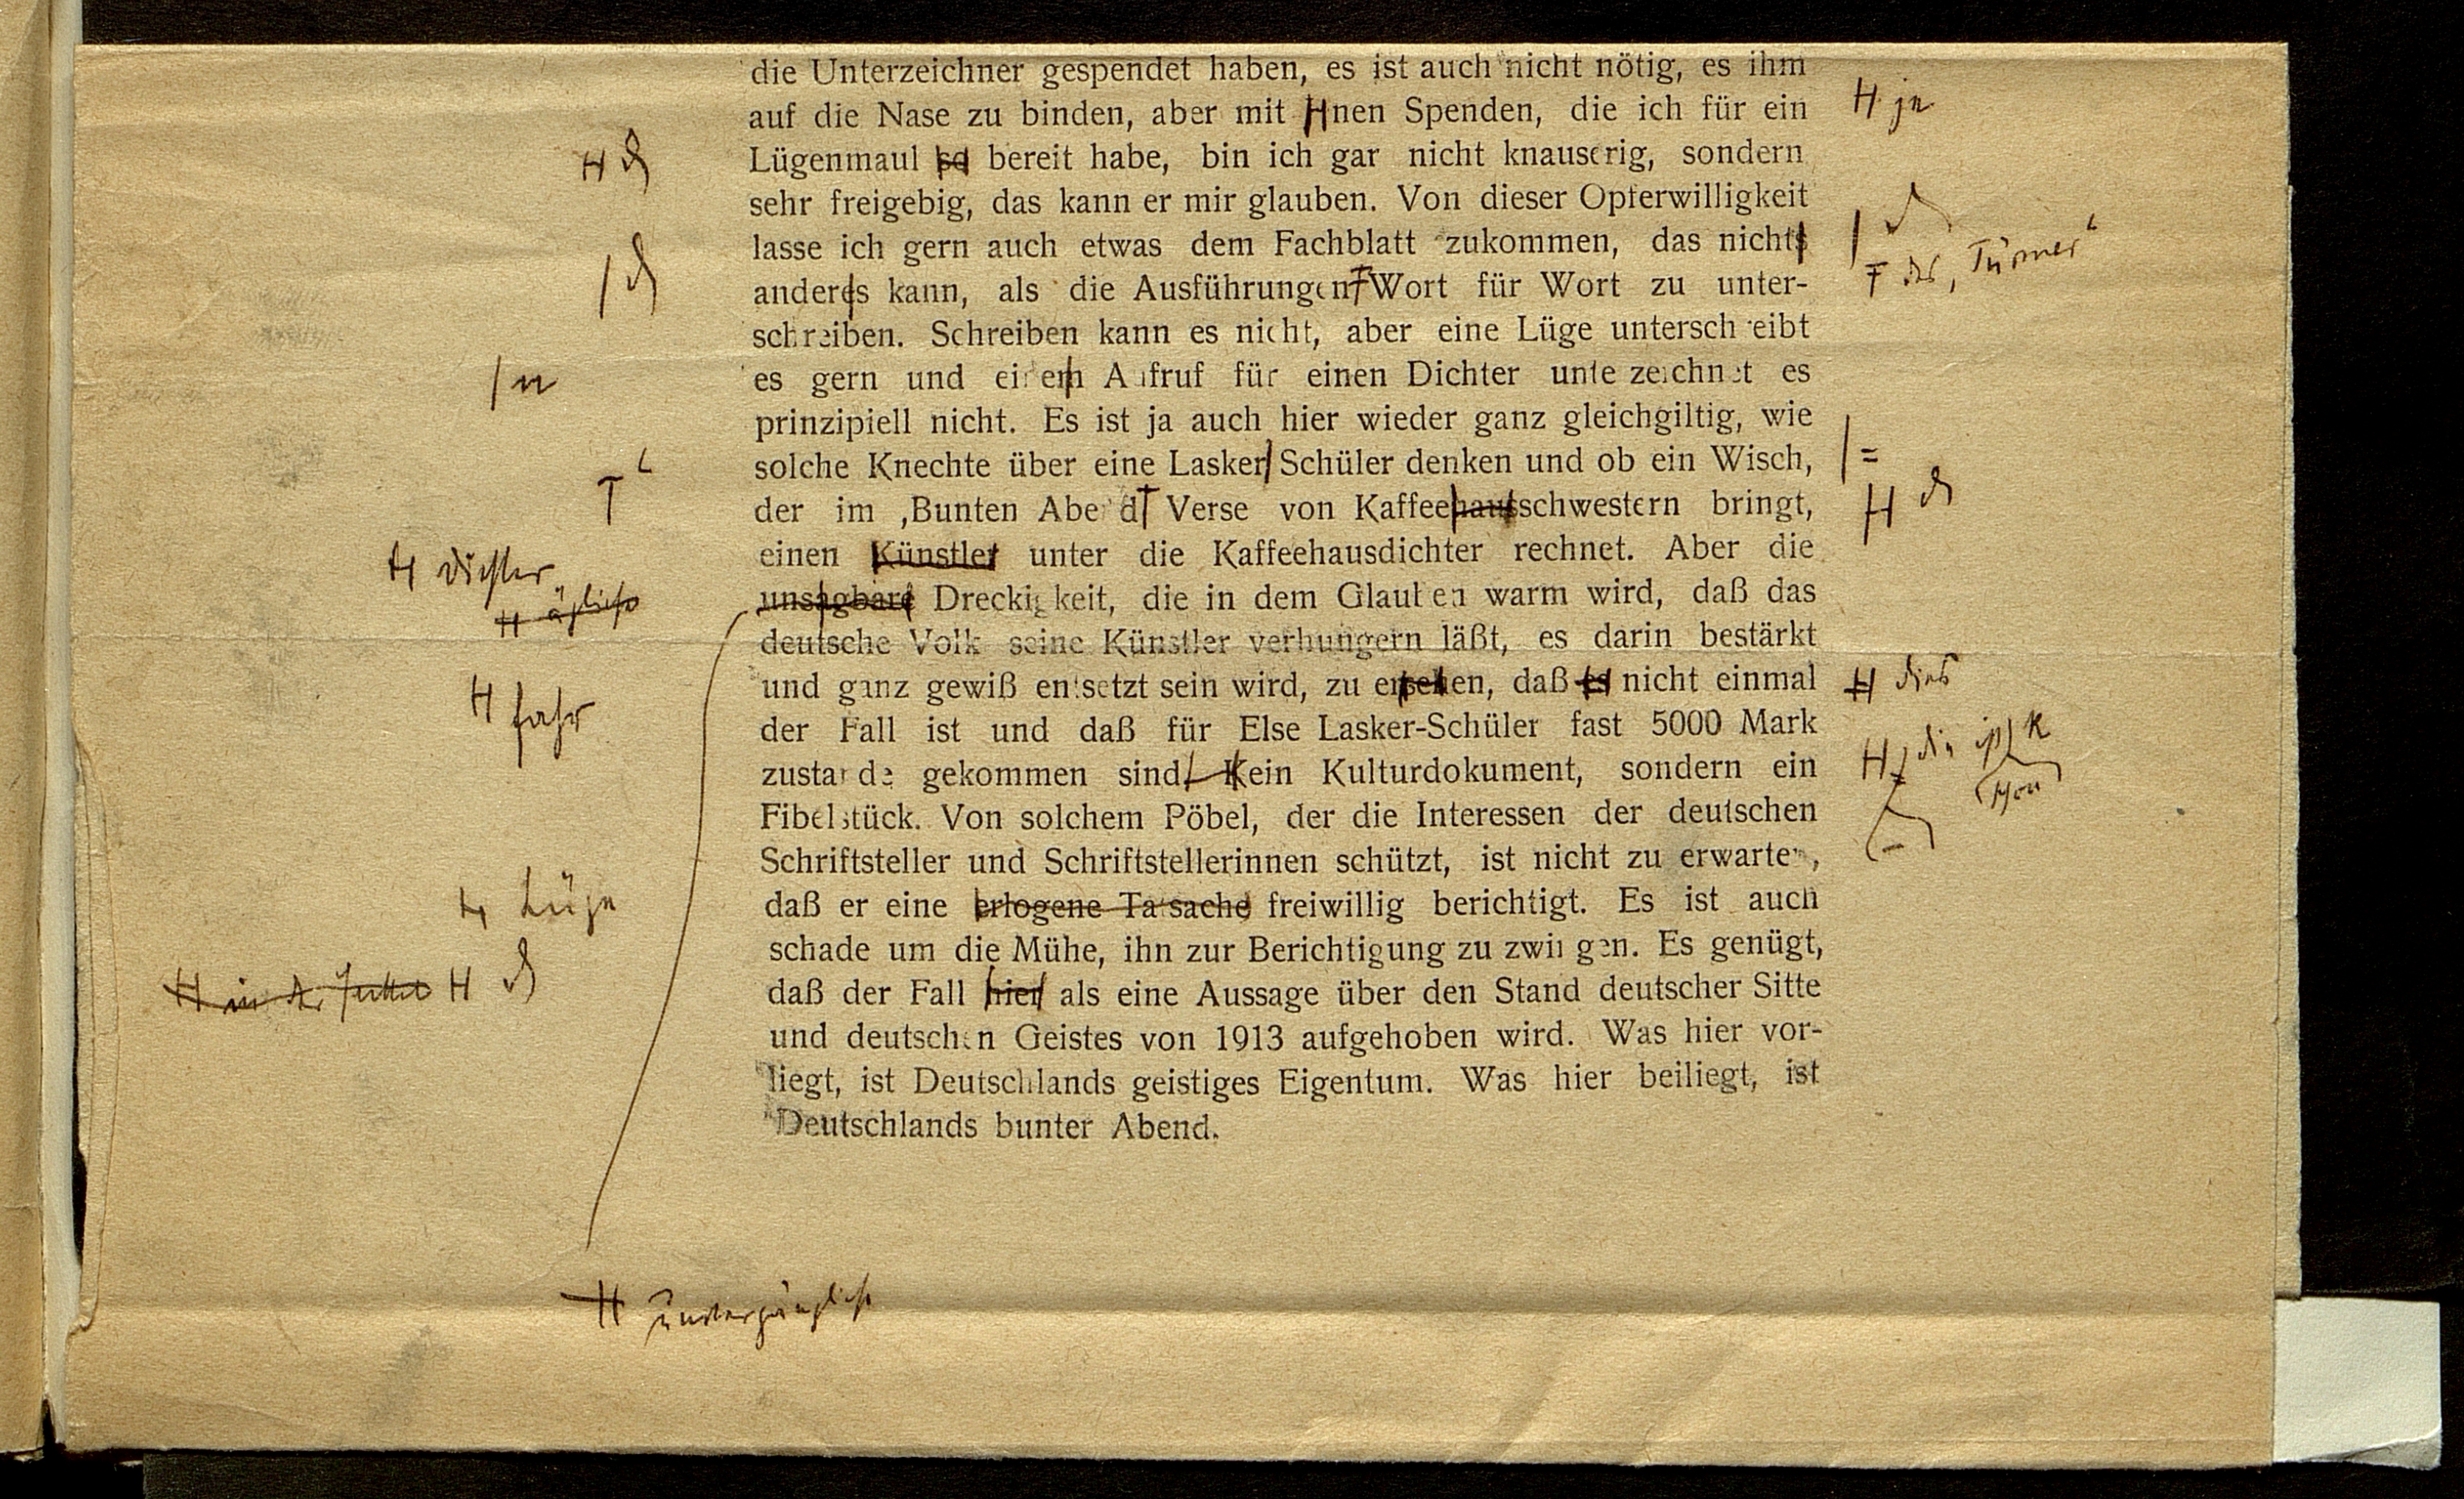 die Unterzeichner gespendet haben, es ist auch nicht nötig, es ihm
auf die Nase zu binden, aber mit nen Spenden, die ich für ein
H je
Lügenmaul so bereit habe, bin ich gar nicht knauserig, sondern
sehr freigebig, das kann er mir glauben. Von dieser Opferwilligkeit
lasse ich gern auch etwas dem Fachblatt zukommen, das nichts
F des ‚Türmer‘
anderes kann, als die Ausführungen Wort für Wort zu unter-
schreiben. Schreiben kann es nicht, aber eine Lüge unterschreibt
es gern und einem Aufruf für einen Dichter unterzeichnet es
n
prinzipiell nicht. Es ist ja auch hier wieder ganz gleichgiltig, wie
solche Knechte über eine Lasker Schüler denken und ob ein Wisch,
=
der im ‚Bunten Abend Verse von Kaffeehausschwestern bringt,
‘
einen Künstler unter die Kaffeehausdichter rechnet. Aber die
H Dichter
unsagbare Dreckigkeit, die in dem Glauben warm wird, daß das
H ägliche
deutsche Volk seine Künstler verhungern läßt, es darin bestärkt
und ganz gewiß entsetzt sein wird, zu ersehen, daß es nicht einmal
H fahr
H dies
der Fall ist und daß für Else Lasker-Schüler fast 5000 Mark
zustande gekommen sind, Kein Kulturdokument, sondern ein
H die ist k
Fibelstück. Von solchem Pöbel, der die Interessen der deutschen
Schriftsteller und Schriftstellerinnen schützt, ist nicht zu erwarten,
daß er eine erlogene Tatsache freiwillig berichtigt. Es ist auch
H Lüge
schade um die Mühe, ihn zur Berichtigung zu zwingen. Es genügt,
daß der Fall hier als eine Aussage über den Stand deutscher Sitte
H in der Fackel H
und deutschen Geistes von 1913 aufgehoben wird. Was hier vor-
liegt, ist Deutschlands geistiges Eigentum. Was hier beiliegt, ist
Deutschlands bunter Abend.
H unvergängliche